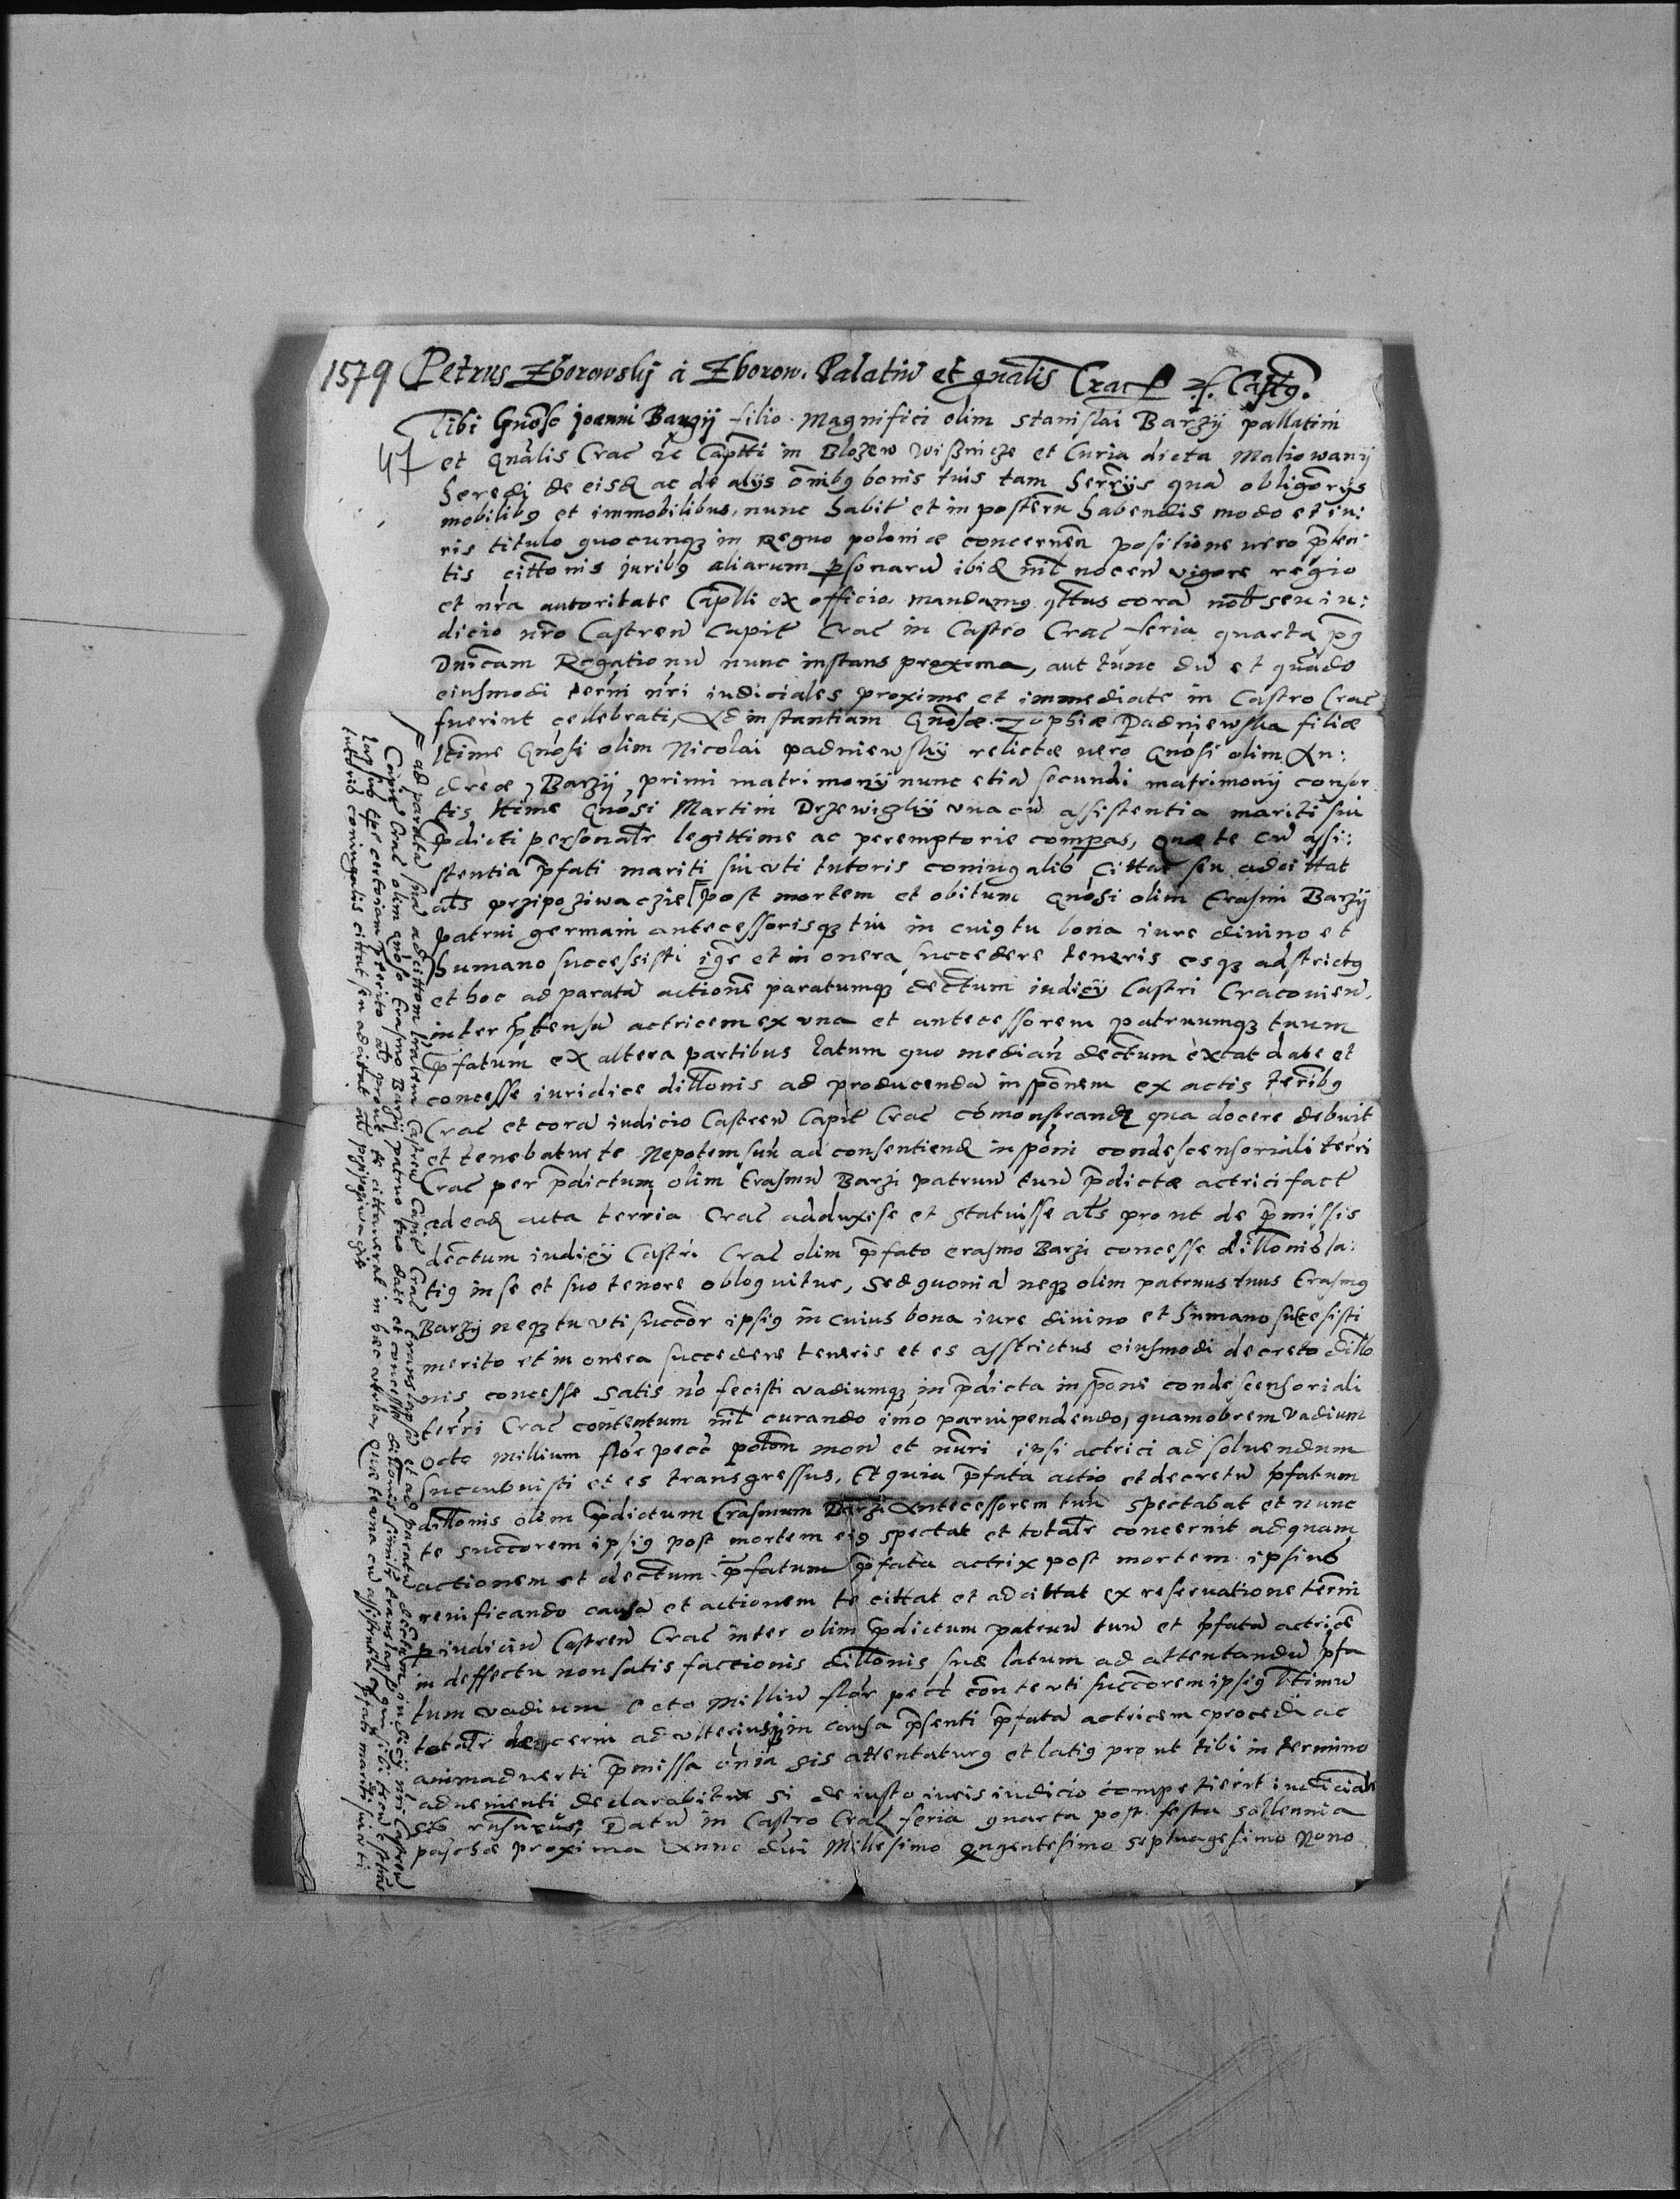 1579 Petrus Zborowsky à Zborow. Palatin9 et gnãlis Crac etc. Capt9.
Tibi Gnõso Joanni Barzij filio Magnifici olim Stanislai Barzÿ pallatini
47
et Gnãlis Crac etc Captti in Blozew Wisnicze et Curia dicta Maliowanÿ
heredi de eisd ac de alijs omnib9 bonis tuis tam herrijs qua obligorijs
mobilib9 et immobilibus nunc habit et in posteru habendis modo et iu:
ris titulo quocunq3 in Regno polonicæ concernen positione uero pñten
tis cittonis juribus aliarum psonaru ibid nil nocen vigore regio
et nrã autoritate Captli ex officio mandam9 qttus corã nob seu iu:
dicio nrõ Castren Capit Crac in Castro Crac feria quarta p9
Dnicam Rogationu nunc instans proxima, aut tunc du et quãdo
eiusmodi termi nri iudiciales proxime et immediate in Castro Crac
fuerint cellebrati, Ad instantiam Gnosæ Zophiæ Padniewska filiæ
lttime Gnosi olim Nicolai padniewskÿ relictæ uero Gnosi olim An:
dreæ Barzÿ, primi matrimonÿ nunc etiã secundi matrimonij consor
tis lttime Gnosi Martini Drzewiczkÿ una cu assistentia mariti sui
pdicti personalr legittime ac peremptorie compas, Quæ te cu assi:
stentia pfati mariti sui uti tutoris coniugalib Cittat seu adcittat
als przipoziwa czie post mortem et obitum Gnosi olim Erasmi Barzÿ
patrui germani antecessorisq3 tui in cui9 tu bona iure diuino et
humano successisti igr et in onera succedere teneris esq3 adstrict9
et hoc ad paratã actionẽ paratumq3 dectum iudicÿ Castri Cracovien.
inter ptensã actricem ex una et antecessorem patruumq3 tuum
pfatum ex altera partibus latum quo median dectum extat date et
concesse iuridice dillonis ad producendã inspõnem ex actis terrib9
Crac et corã iudicio Castren Capit Crac comonstrand qua docere debuit
et tenebatur te Nepotem suu ad consentiend inspõni condescensoriali terri
Crac per pdictum olim Erasmu Barzi patruu tuu pdictæ actrici fact
ad ead acta terria Crac adduxisse et statuisse als prout de pmissis
dectum iudicÿ Castri Crac olim pfato erasmo Barzi concesse dillonis la:
ti9 in se et suo tenore obloquitur, Sed quoniã neq3 olim patruus tuus Erasm9
Barzÿ neq3 tu uti succor ipsi9 in cuius bona iure diuino et humano successisti
merito et in onera succedere teneris et es asstrictus eiusmodi decreto dillo
nis concesse satis nõ fecisti uadiumq3 in pdicta inspõne condescensoriali
terri Crac contentum nil curando imo paruipendendo, quamobrem Vadium
octo millium flor pecc polon mon et nuri ipsi actrici ad soluendum
succubuisti et es transgressus. Et quia pfata actio et decretu pfatum
dillonis olim pdictum Erasmum Barzi Antecessorem tuu spectabat et nunc
te succorem ipsi9 post mortem ei9 spectat et totalr concernit ad quam
actionem et dectum pfatum pfata actrix post mortem ipsius
reuificando causã et actionem te cittat et adcittat ex reseruatione termi
p iudiciu Castren Crac inter olim pdictum patruu tuu et pfatã actrice
in deffectu non satis factionis dillonis suæ latum ad attentandu pfa
tum vadium octo milliu flor pecc con te uti succorem ipsi9 lttimu
totalr decerni ad ulterius in causa psenti pfatã actricem procedi ac
animaduerti pmissa omia sis attentatur9 et lati9 prout tibi in termino
aduenienti declarabitur si de iusto iuris iudicio competierit iudicialr
sis rnsurus, Datu in Castro Crac feria quarta post festa sollennia
paschæ proxima Anno dni Millesimo Qngentesimo septuagesimo Nono
ad paratã suã adcittom libalem Castren Capit Crac translapsã et ad paratu dectum iudicÿ nri Castren
Capit Crac olim gnoso Erasmo Barzÿ patruo tuo date et concesse dillonis
tutoris coniugalis cittat seu adcittat als przipoziwa czie